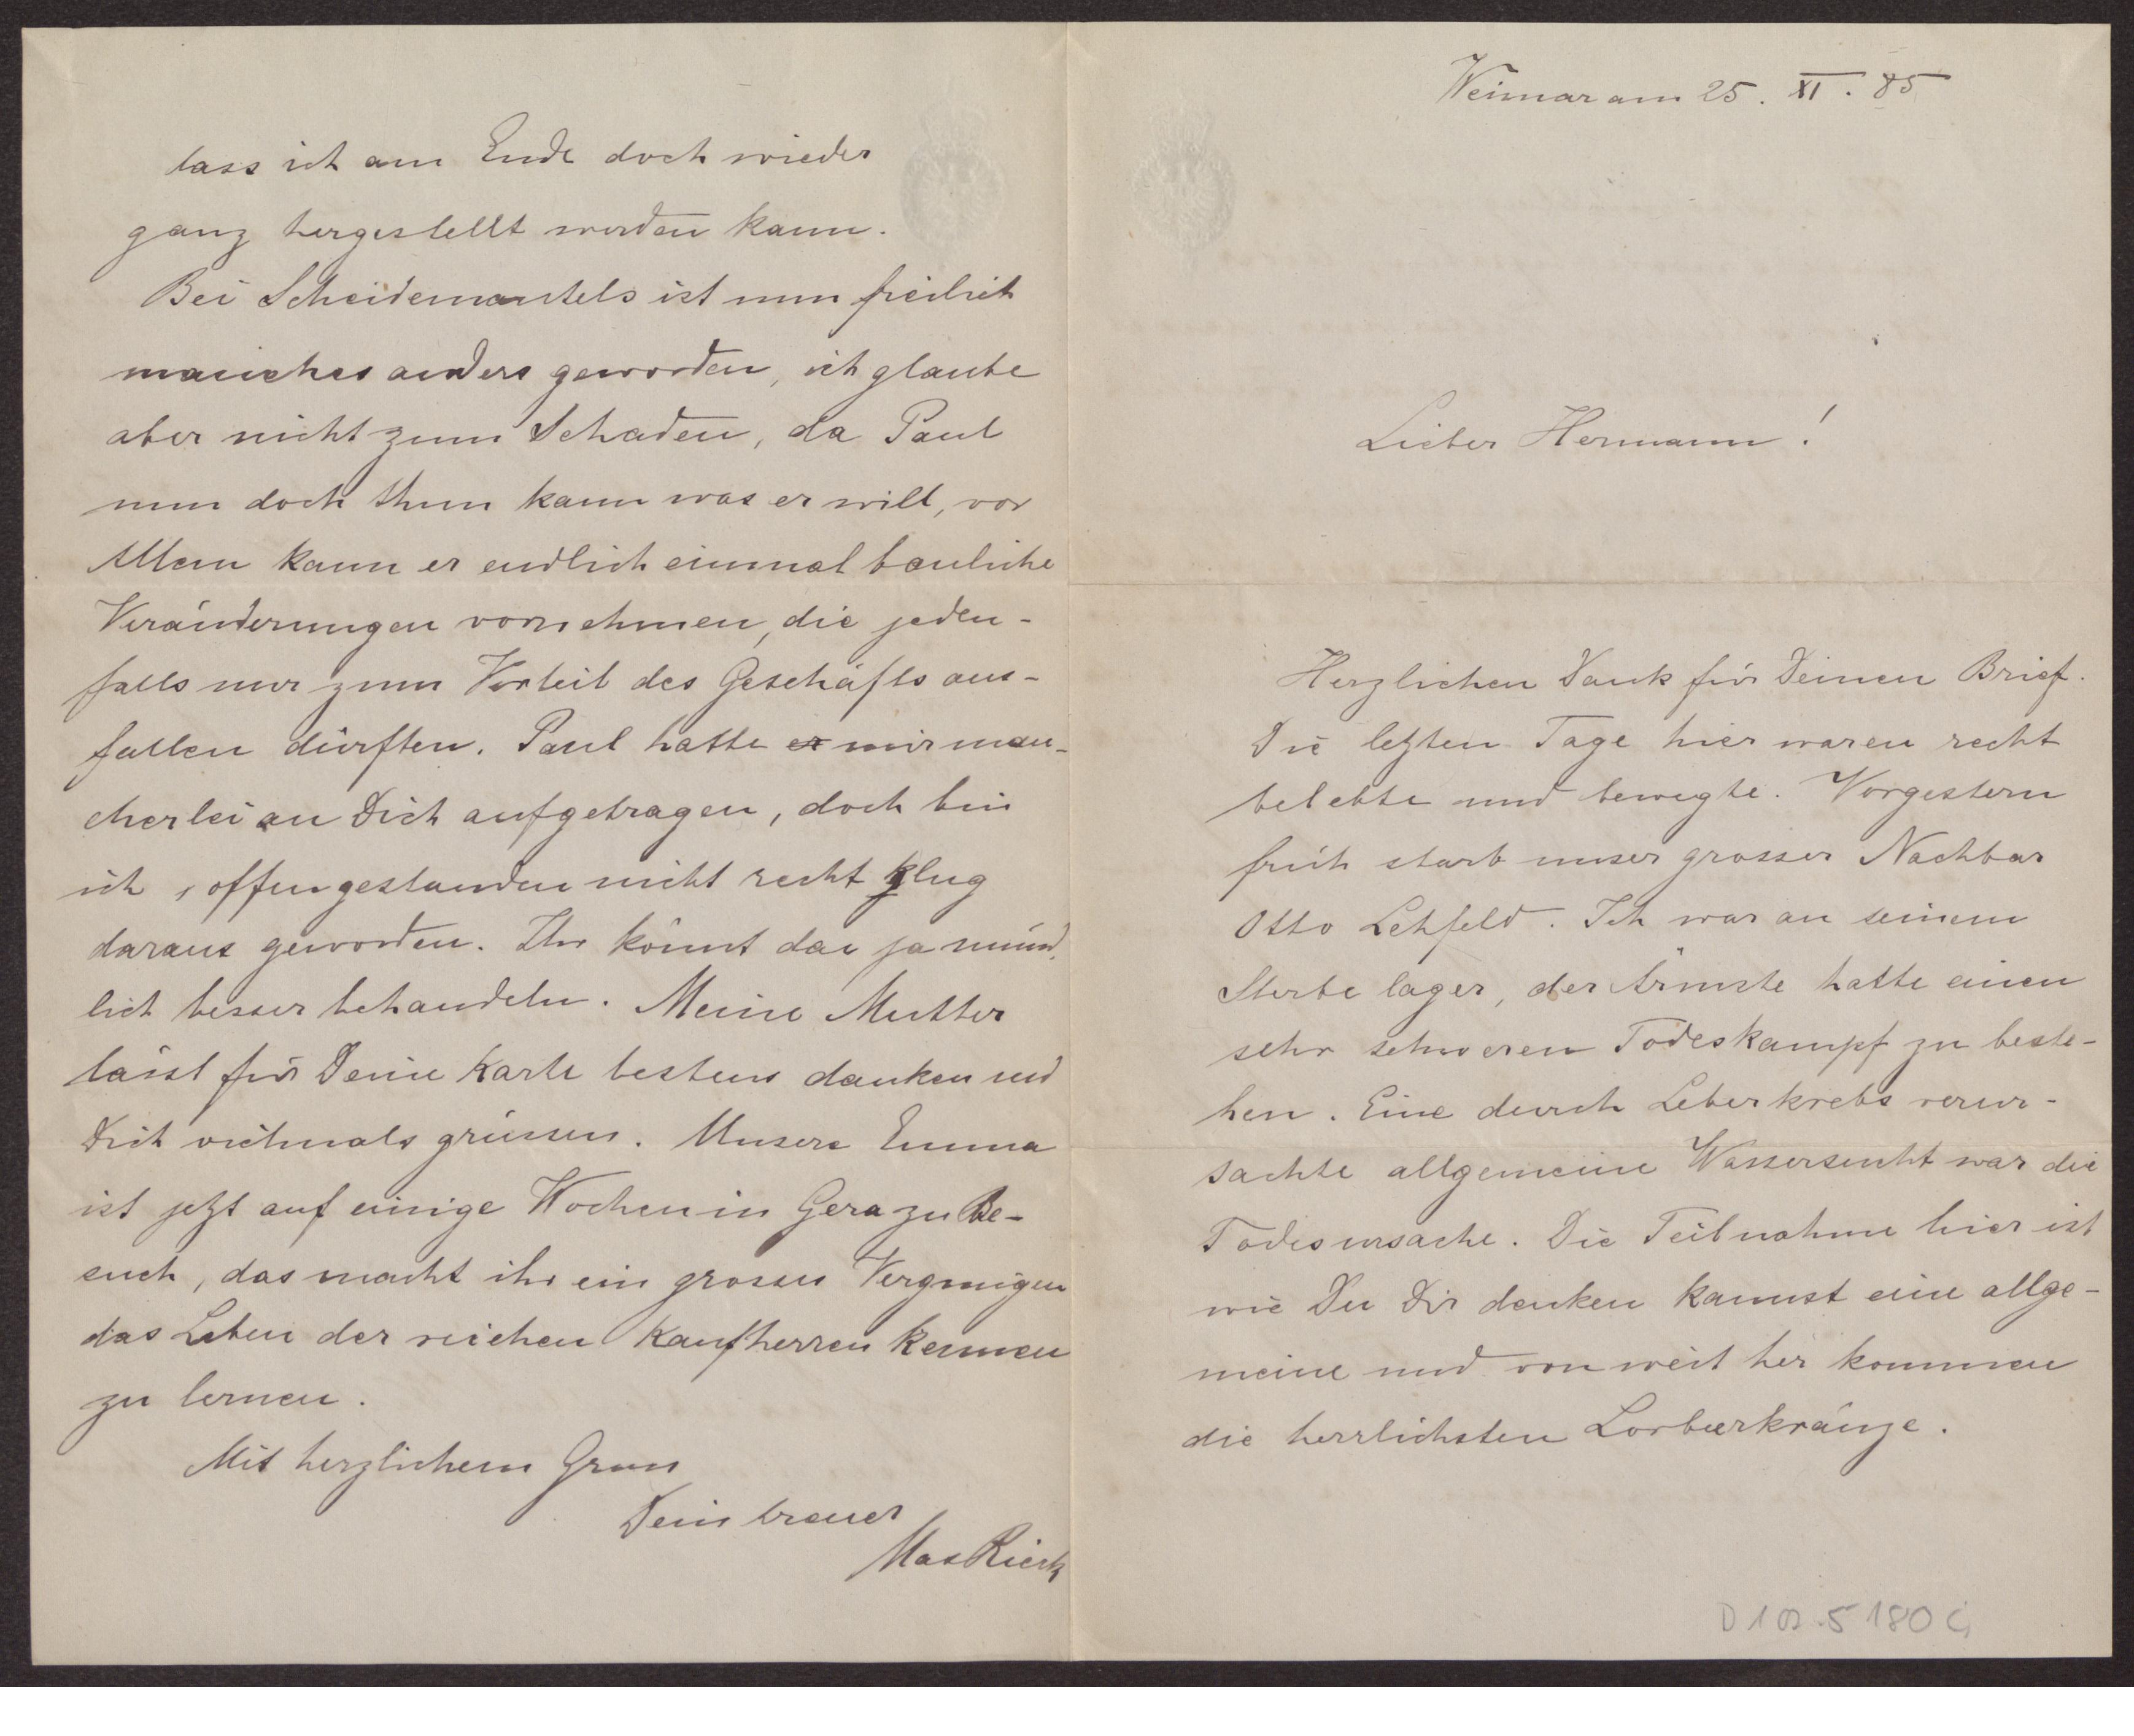 Weimar am 25. XI. 85
Lieber Hermann!
Herzlichen Dank für Deinen Brief.
Die letzten Tage hier waren recht
belebte und bewegte. Vorgestern
früh starb unser grosser Nachbar
Otto Lehfeld. Ich war an seinem
Sterbelager, der Ärmste hatte einen
sehr schweren Todeskampf zu beste-
hen. Eine durch Leberkrebs verur-
sachte allgemeine Wassersucht war die
Todesursache. Die Teilnahme hier ist
wie Du Dir denken kannst eine allge-
meine und von weit her kommen
die herrlichsten Lorbeerkränze.
D 102.5180 G
dass ich am Ende doch wieder
ganz hergestellt werden kann.
Bei Scheidemantels ist nun freilich
manches anders geworden, ich glaube
aber nicht zum Schaden, da Paul
nun doch thun kann was er will, vor
Allem kann er endlich einmal bauliche
Veränderungen vornehmen, die jeden-
falls nur zum Vorteil des Geschäfts aus-
fallen dürften. Paul hatte er mir man-
cherlei an Dich aufgetragen, doch bin
ich, offengestanden nicht recht klug
daraus geworden. Ihr könnt das ja münd-
lich besser behandeln. Meine Mutter
lässt für Deine Karte bestens danken und
Dich vielmals grüssen. Unsere Emma
ist jetzt auf einige Wochen in Gera zu Be-
such, das macht ihr ein grosses Vergnügen
das Leben der reichen Kaufherren kennen
zu lernen.
Mit herzlichem Gruss
Dein treuer
Max